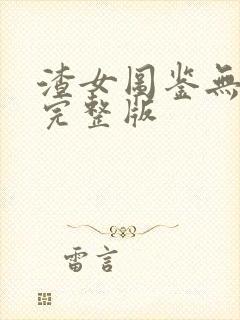 渣女图鉴無
完整版
雷言